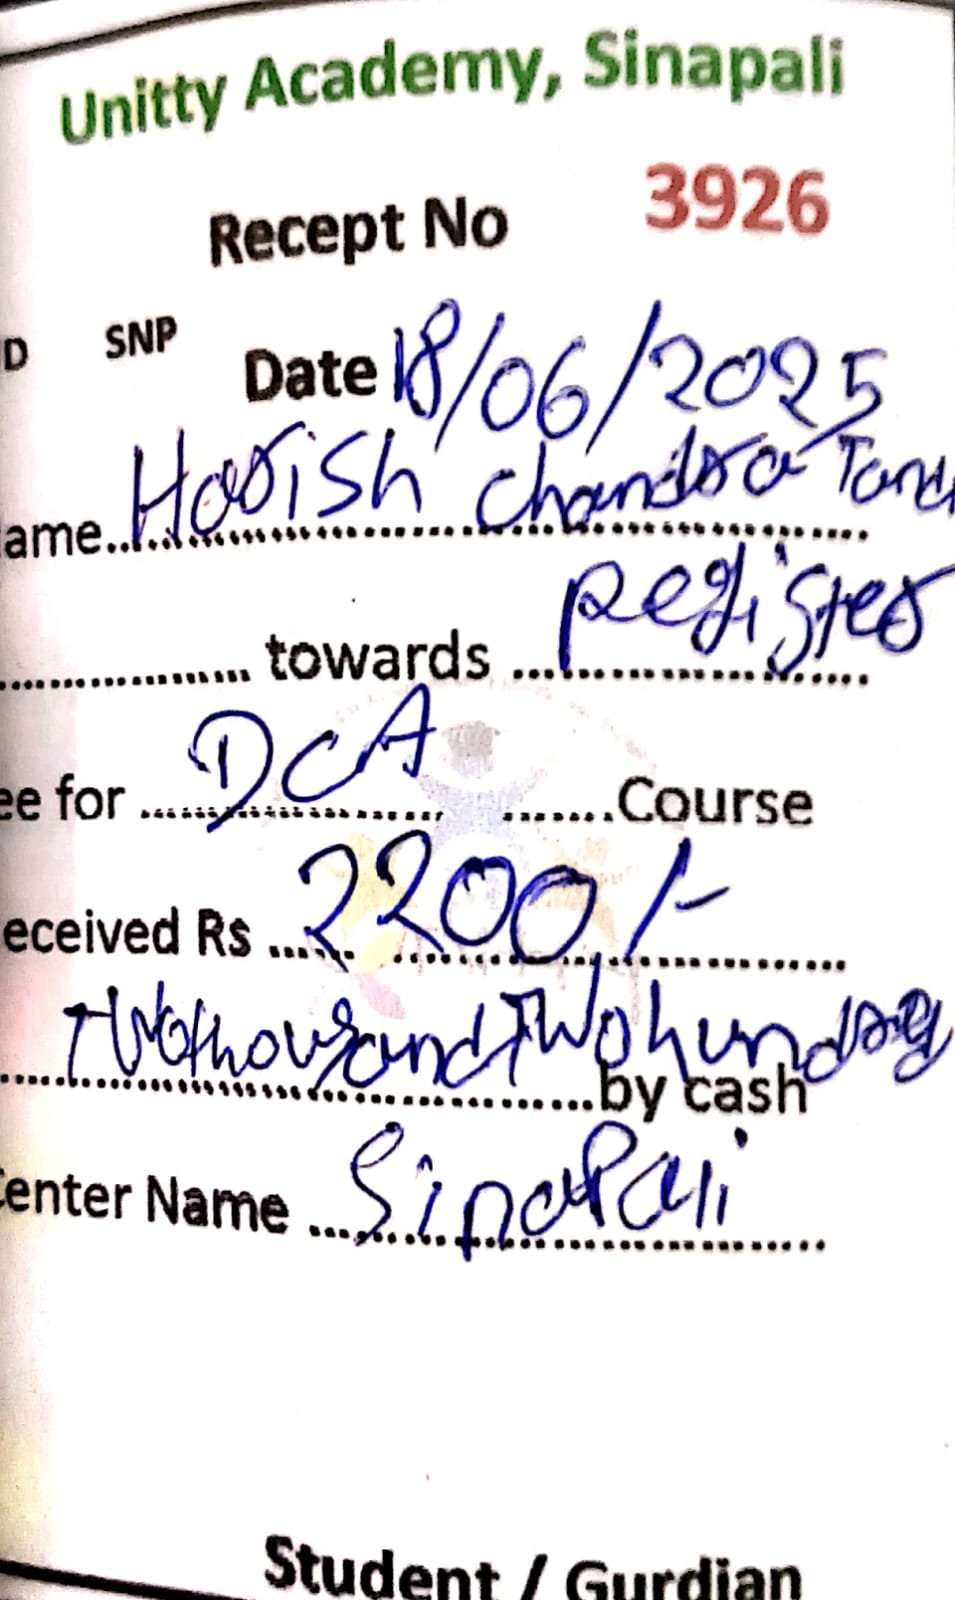 Unitty Academy, Sinapali
Recept No 3926
D SNP
Date 18/06/2025
ame Harish Chandra Tand
towards register
ee for DCA Course
eceived Rs 2200/-
Twothousand Twohundred
by cash
enter Name Sinapali
Student / Gurdian